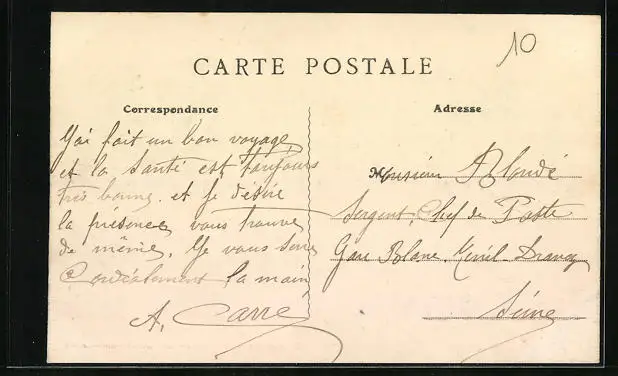 10
CARTE POSTALE
Correspondance
J'ai fait un bon voyage,
et la santé est toujours
très bonne et je désire
la présence vous trouve
de même. Je vous serre
Cordialement la main
A. Carré
Adresse
Monsieur Blondé
Sergent, Chef de Poste
Gare Blanc Ménil Drancy
Seine